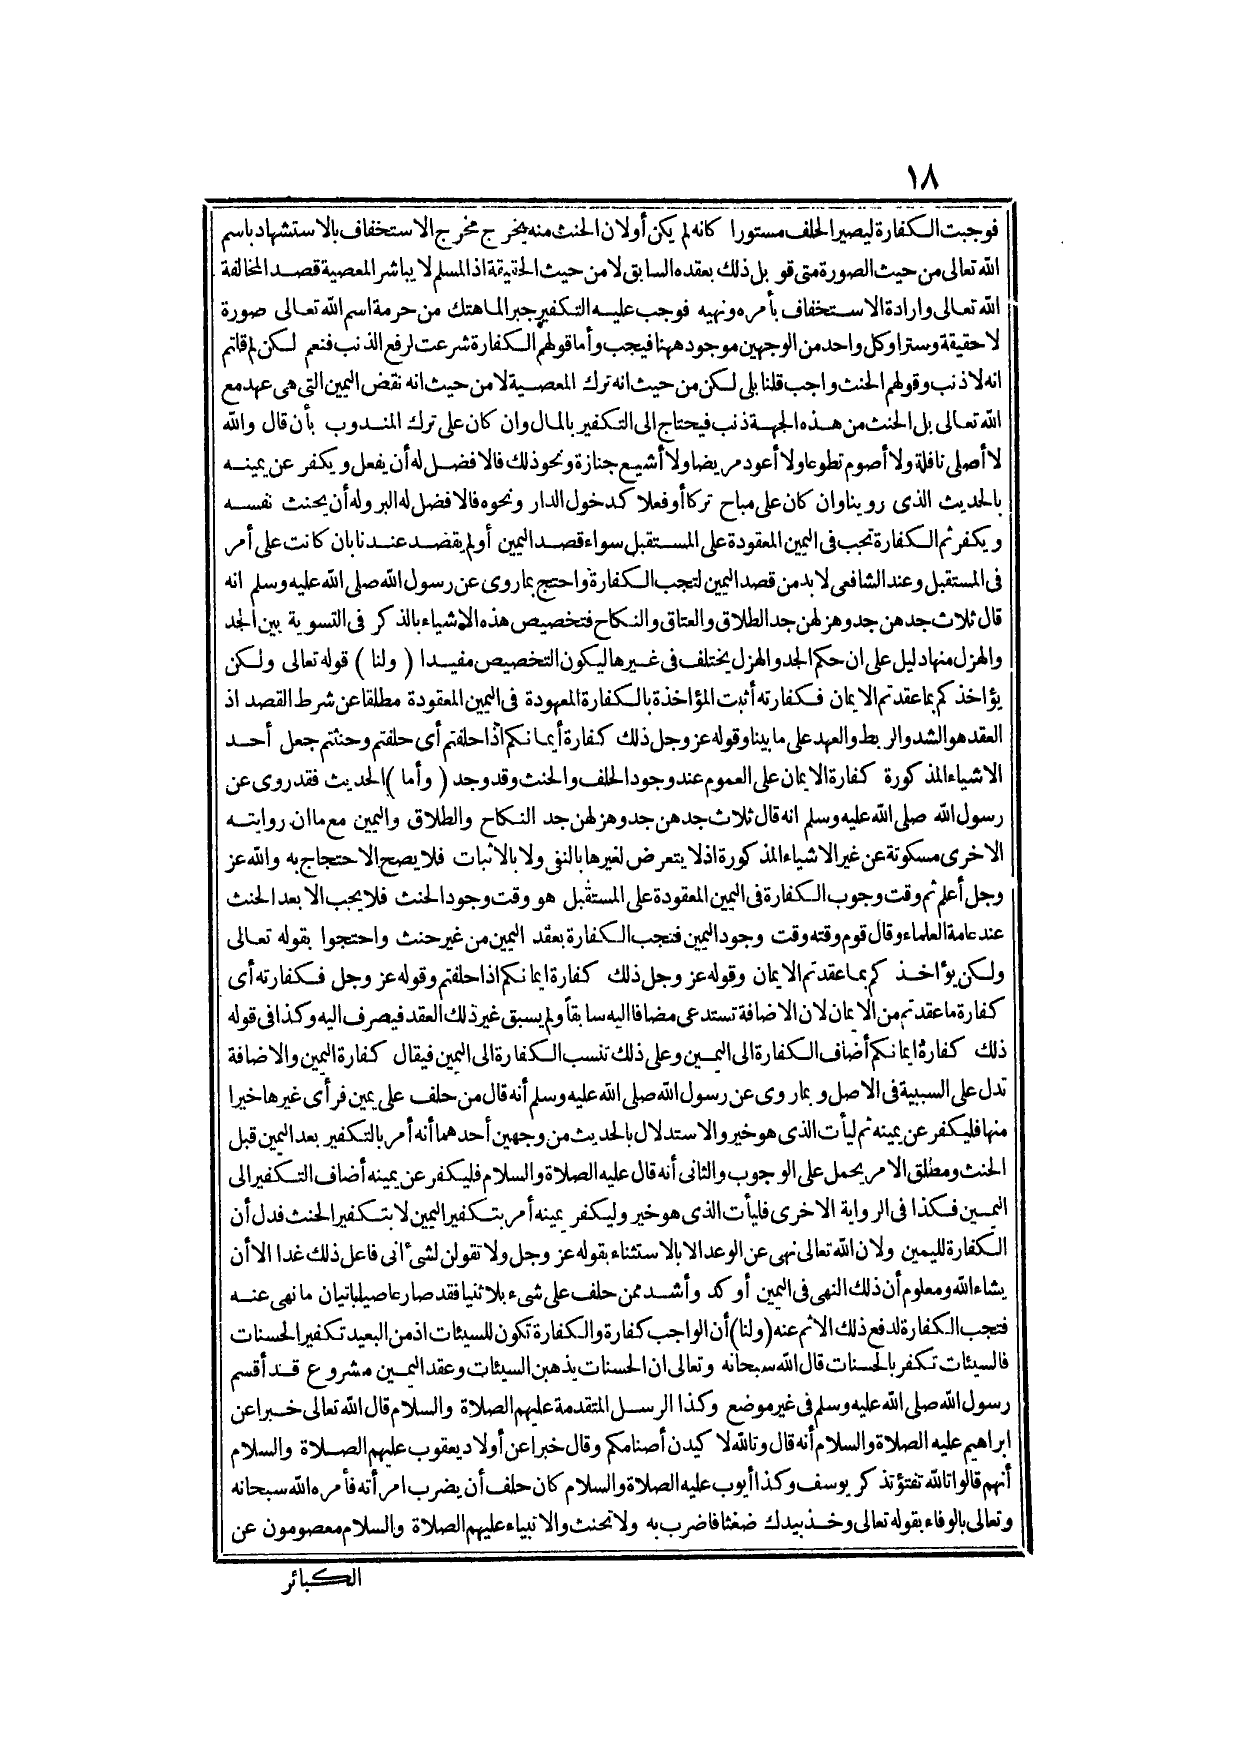 ١٨
فوجبت الكفارة ليصير الحلف مستورا كانه لم يكن أولان الحنث منه يخرج مخرج الاستخفاف بالاستشهاد باسم
الله تعالى من حيث الصورة متى قوبل ذلك بعقده السابق لا من حيث الحقيقة اذ المسلم لا يباشر المعصية قصد المخالفة
الله تعالى وارادة الاستخفاف بأمره ونهيه فوجب عليه التكفير جبر الماهتك من حرمة اسم الله تعالى صورة
لا حقيقة وستراوكل واحد من الوجهين موجود ههنا فيجب وأما قولهم الكفارة شرعت لرفع الذنب فنعم لكن لم قلتم
انه لاذنب وقولهم الحنث واجب قلنا بلى لكن من حيث انه ترك المعصية لا من حيث انه نقض اليمين التى هى عهد مع
الله تعالى بل الحنث من هذه الجهة ذنب فيحتاج الى التكفير بالمال وان كان على ترك المندوب بأن قال والله
لا أصلى نافلة ولا أصوم تطوعا ولا أعود مريضا ولا أشيع جنازة ونحو ذلك فالافضل له أن يفعل ويكفر عن يمينه
بالحديث الذى رويناوان كان على مباح تركا أو فعلا كدخول الدار ونحوه فالافضل له البر وله أن يحنث نفسه
ويكفر ثم الكفارة تجب فى اليمين المعقودة على المستقبل سواء قصد اليمين أو لم يقصد عندنا بان كانت على أمر
فى المستقبل وعند الشافعى لا بد من قصد اليمين لتجب الكفارة واحتج بما روى عن رسول الله صلى الله عليه وسلم انه
قال ثلاث جدهن جد وهزلهن جد الطلاق والعتاق والنكاح فتخصيص هذه الاشياء بالذكر فى التسوية بين الجد
والهزل منها دليل على ان حكم الجد والهزل يختلف فى غيرها ليكون التخصيص مفيدا ( ولنا ) قوله تعالى ولكن
يؤاخذكم بما عقدتم الايمان فكفارته أثبت المؤاخذة بالكفارة المعهودة فى اليمين المعقودة مطلقا عن شرط القصد اذ
العقد هو الشد والربط والعهد على ما بينا وقوله عز وجل ذلك كفارة أيمانكم اذا حلفتم أى حلفتم وحنثتم جعل أحد
الاشياء المذكورة كفارة الايمان على العموم عند وجود الحلف والحنث وقد وجد ( وأما ) الحديث فقد روى عن
رسول الله صلى الله عليه وسلم انه قال ثلاث جدهن جد وهزلهن جد النكاح والطلاق واليمين مع ما ان روايته
الاخرى مسكوتة عن غير الاشياء المذكورة اذ لا يتعرض لغيرها بالنفى ولا بالاثبات فلا يصح الاحتجاج به والله عز
وجل أعلم ثم وقت وجوب الكفارة فى اليمين المعقودة على المستقبل هو وقت وجود الحنث فلا يجب الا بعد الحنث
عند عامة العلماء وقال قوم وقته وقت وجود اليمين فتجب الكفارة بعقد اليمين من غير حنث واحتجوا بقوله تعالى
ولكن يؤاخذكم بما عقدتم الايمان وقوله عز وجل ذلك كفارة ايمانكم اذا حلفتم وقوله عز وجل فكفارته أى
كفارة ما عقدتم من الايمان لان الاضافة تستدعى مضافا اليه سابقاً ولم يسبق غير ذلك العقد فيصرف اليه وكذا فى قوله
ذلك كفارة ايمانكم أضاف الكفارة الى اليمين وعلى ذلك تنسب الكفارة الى اليمين فيقال كفارة اليمين والاضافة
تدل على السببية فى الاصل وبما روى عن رسول الله صلى الله عليه وسلم أنه قال من حلف على يمين فرأى غيرها خيرا
منها فليكفر عن يمينه ثم ليأت الذى هو خير والاستدلال بالحديث من وجهين أحدهما أنه أمر بالتكفير بعد اليمين قبل
الحنث ومطلق الامر يحمل على الوجوب والثانى أنه قال عليه الصلاة والسلام فليكفر عن يمينه أضاف التكفير الى
اليمين فكذا فى الرواية الاخرى فليأت الذى هو خير وليكفر يمينه أمر بتكفير اليمين لا بتكفير الحنث فدل أن
الكفارة لليمين ولان الله تعالى نهى عن الوعد الا بالاستثناء بقوله عز وجل ولا تقولن لشىء انى فاعل ذلك غدا الا أن
يشاء الله ومعلوم أن ذلك النهى فى اليمين أوكد وأشد ممن حلف على شىء بلا ثنيا فقد صار عاصيا باتيان ما نهى عنه
فتجب الكفارة لدفع ذلك الاثم عنه (ولنا) أن الواجب كفارة والكفارة تكون للسيئات اذ من البعيد تكفير الحسنات
فالسيئات تكفر بالحسنات قال الله سبحانه وتعالى ان الحسنات يذهبن السيئات وعقد اليمين مشروع قد أقسم
رسول الله صلى الله عليه وسلم فى غير موضع وكذا الرسل المتقدمة عليهم الصلاة والسلام قال الله تعالى خبرا عن
ابراهيم عليه الصلاة والسلام أنه قال وتالله لا كيدن أصنامكم وقال خبرا عن أولاد يعقوب عليهم الصلاة والسلام
أنهم قالوا تالله تفتؤ تذكر يوسف وكذا أيوب عليه الصلاة والسلام كان حلف أن يضرب امرأته فأمره الله سبحانه
وتعالى بالوفاء بقوله تعالى وخذ بيدك ضغثا فاضرب به ولا تحنث والانبياء عليهم الصلاة والسلام معصومون عن
الكبائر